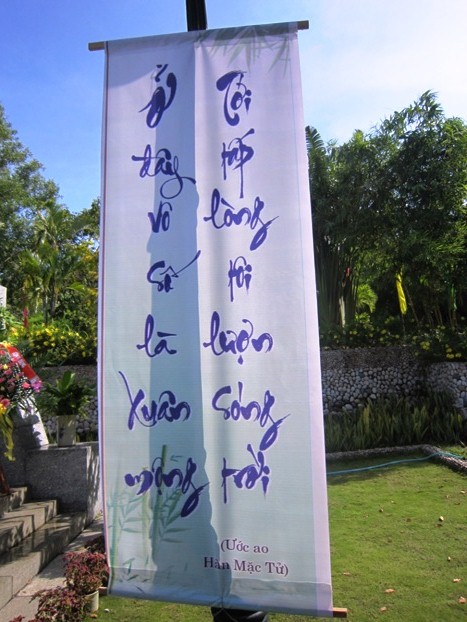 Ở đây vô số là xuân mộng
Tôi lòng tôi lượn sóng trời
(Ước ao
Hàn Mặc Tử)